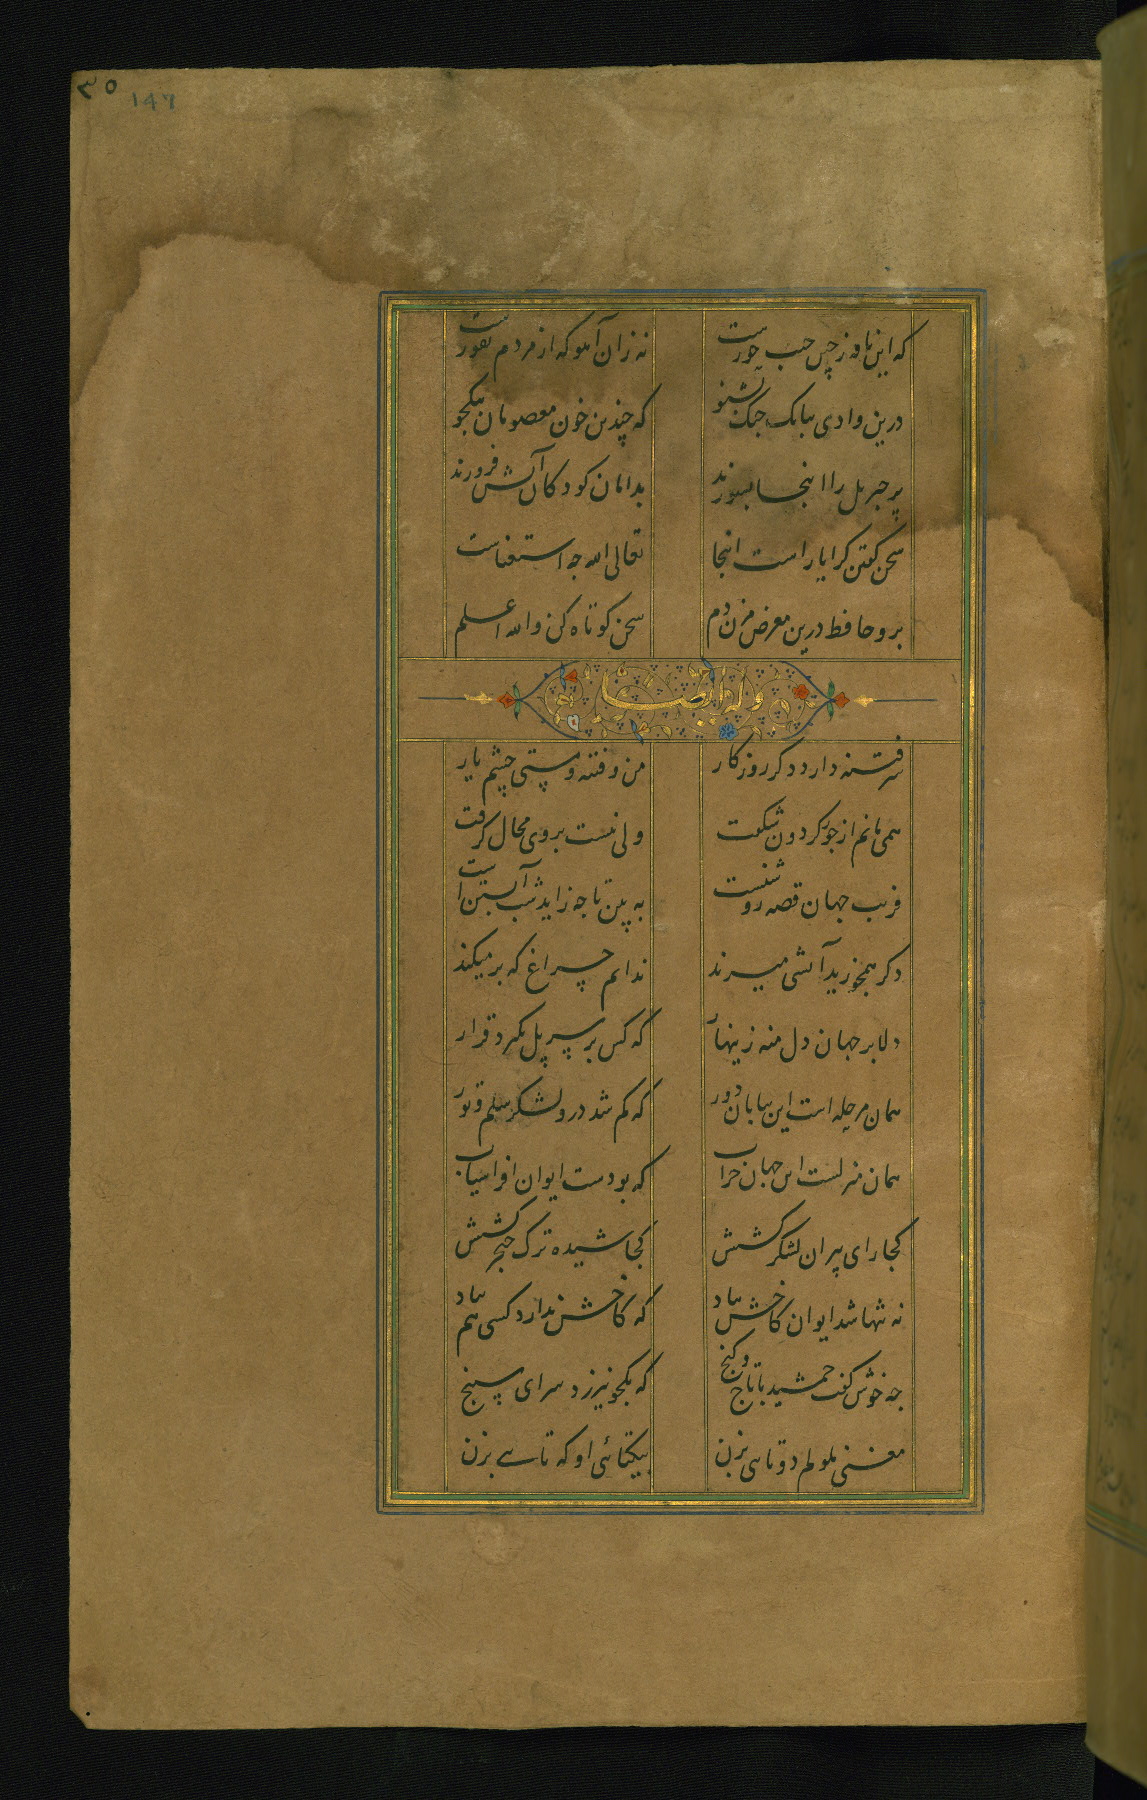 ۳۵
147
که این نافه ز چین جیب حورست
نه زان آهو که از مردم نفورست
درین وادی ببانک جنک بشنو
که چندین خون معصومان بیکجو
پر جبریل را اینجا بسوزند
بدامان کودکان آتش فروزند
سخن کفتن کرا یاراست اینجا
تعالی الله چه استغناست
برو حافظ درین معرض مزن دم
سخن کوتاه کن والله اعلم
وله ایضا
سر فتنه دارد دکر روزکار
من و فتنه و مستی چشم یار
همی مانم از جور کردون شکفت
ولی نیست بروی مجال کرفت
فریب جهان قصه روشنست
به بین تا چه زاید شب آبستن است
دکر همچو زید آتشی میزند
ندانم چراغ که بر میکند
دلا بر جهان دل منه زینهار
که کس بر سر پل نکیرد قرار
همان مرحله است این بیابان دور
که کم شد درو لشکر سلم و تور
همان منزلست این جهان خراب
که بودست ایوان افراسیاب
کجا رای پیران لشکر کشش
کجا شیده ترک خنجر کشش
نه تنها شد ایوان کاخش بباد
که کاخش ندارد کسی هم بیاد
چه خوش کفت جمشید با تاج و کنج
که یکجو نیرزد سرای سپنج
مغنی ملولم دوتایی بزن
بیکتائی او که تایی بزن